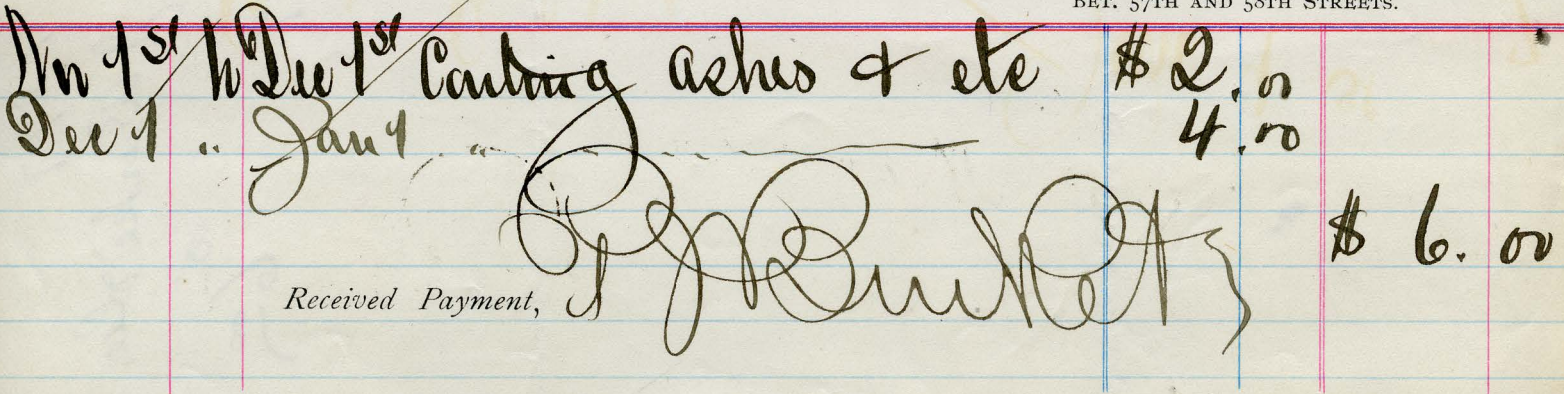 BET. 57TH AND 58TH STREETS.
Nov 1st to Dec 1st Carting ashes & etc $2.00
Dec 1 " Jan 1 " 4.00
$6.00
Received Payment,